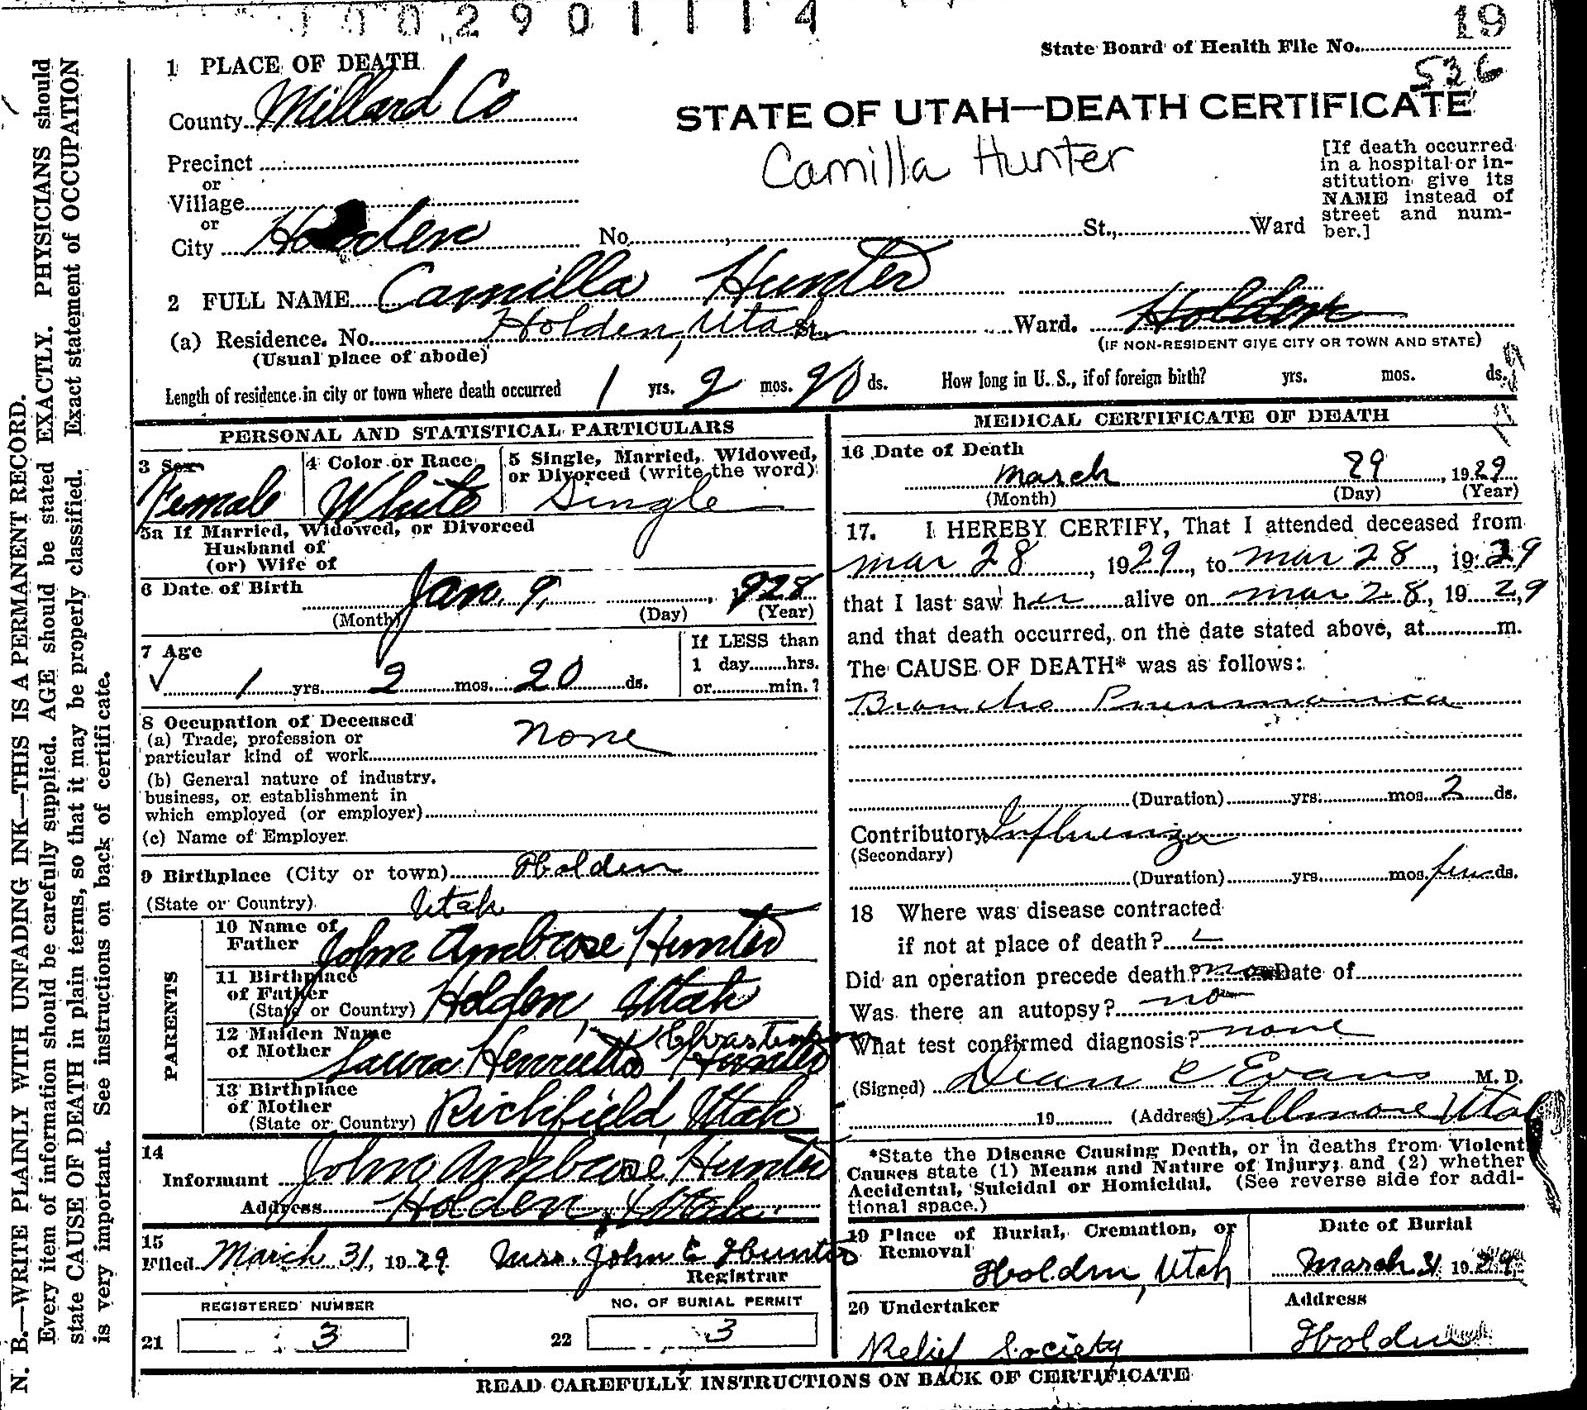 1 0 0 2 9 0 1 1 1 4
19
State Board of Health File No.
536
1 PLACE OF DEATH
County Millard Co
STATE OF UTAH—DEATH CERTIFICATE
Camilla Hunter
[If death occurred
in a hospital or in-
stitution give its
NAME instead of
street and num-
ber.]
Precinct
or
Village
or
City Holden No. St., Ward
2 FULL NAME Camilla Hunter
(a) Residence. No. Holden, Utah St. Ward. Holden
(Usual place of abode) (IF NON-RESIDENT GIVE CITY OR TOWN AND STATE)
Length of residence in city or town where death occurred 1 yrs. 2 mos. 20 ds. How long in U. S., if of foreign birth? yrs. mos. ds.
PERSONAL AND STATISTICAL PARTICULARS
3 Sex
Female
4 Color or Race
White
5 Single, Married, Widowed,
or Divorced (write the word)
Single
5a If Married, Widowed, or Divorced
Husband of
(or) Wife of
6 Date of Birth
Jan. 9, 928
(Month) (Day) (Year)
7 Age
1 yrs. 2 mos. 20 ds.
If LESS than
1 day hrs.
or min.?
8 Occupation of Deceased
(a) Trade, profession or
particular kind of work None
(b) General nature of industry,
business, or establishment in
which employed (or employer)
(c) Name of Employer
9 Birthplace (City or town) Holden
(State or Country) Utah
PARENTS
10 Name of
Father John Ambrose Hunter
11 Birthplace
of Father
(State or Country) Holden, Utah
12 Maiden Name
of Mother Laura Henrietta Hunter
13 Birthplace
of Mother
(State or Country) Richfield Utah
14
Informant John Ambrose Hunter
Address Holden, Utah.
15
Filed March 31, 1929 Mrs. John E Hunter
Registrar
REGISTERED NUMBER
21 3
NO. OF BURIAL PERMIT
22 3
MEDICAL CERTIFICATE OF DEATH
16 Date of Death
March 29, 1929
(Month) (Day) (Year)
17. I HEREBY CERTIFY, That I attended deceased from
Mar 28, 1929, to Mar 28, 1929
that I last saw her alive on Mar 28, 1929,
and that death occurred, on the date stated above, at m.
The CAUSE OF DEATH* was as follows:
Broncho Pneumonia
(Duration) yrs. mos. 2 ds.
Contributory Influenza
(Secondary)
(Duration) yrs. mos. few ds.
18 Where was disease contracted
if not at place of death?
Did an operation precede death? no Date of
Was there an autopsy? no
What test confirmed diagnosis? none
(Signed) Dean C Evans M. D.
19 (Address) Fillmore Utah
*State the Disease Causing Death, or in deaths from Violent
Causes state (1) Means and Nature of Injury; and (2) whether
Accidental, Suicidal or Homicidal. (See reverse side for addi-
tional space.)
19 Place of Burial, Cremation, or
Removal
Holden, Utah
Date of Burial
March 31 1929
20 Undertaker
Relief Society
Address
Holden
READ CAREFULLY INSTRUCTIONS ON BACK OF CERTIFICATE
N. B.—WRITE PLAINLY WITH UNFADING INK—THIS IS A PERMANENT RECORD.
Every item of information should be carefully supplied. AGE should be stated EXACTLY. PHYSICIANS should
state CAUSE OF DEATH in plain terms, so that it may be properly classified. Exact statement of OCCUPATION
is very important. See instructions on back of certificate.